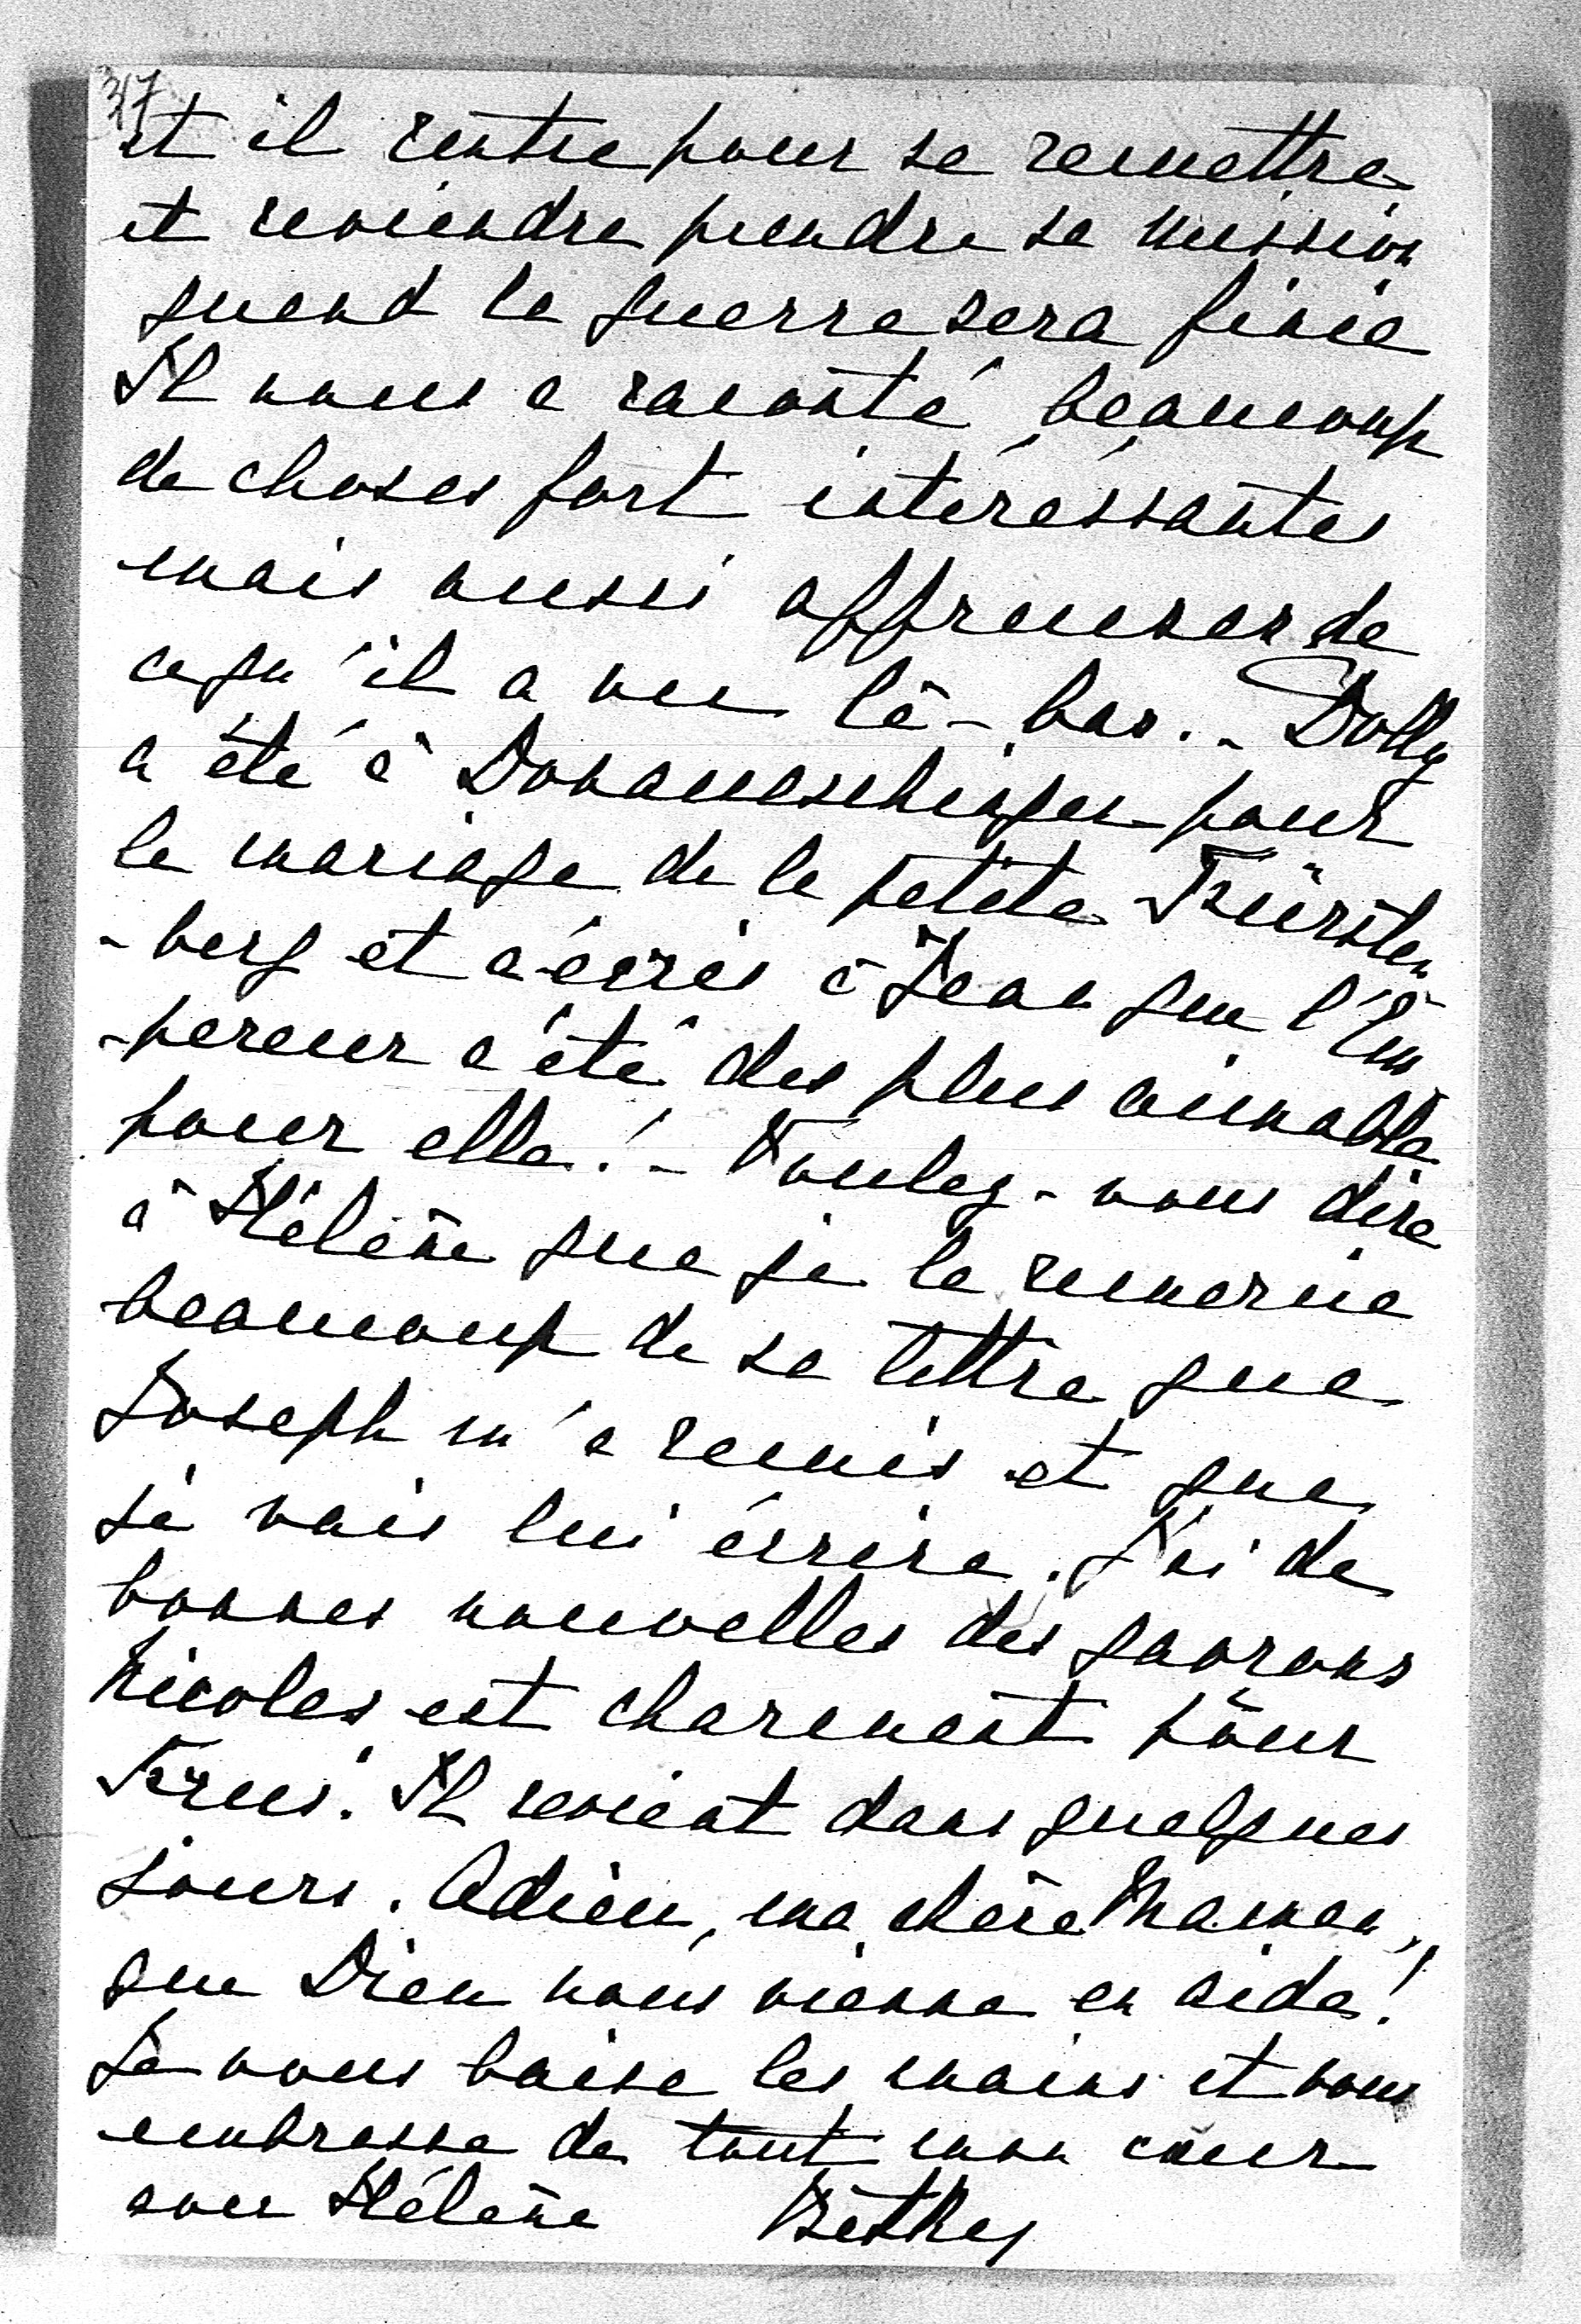 317
et il rentre pour se remettre
et reviendra prendre sa mission
quand la guerre sera finie
Il nous a raconté beaucoup
de choses fort intéressantes
mais aussi affreuses de
ce qu'il a vu là-bas. - Dolly
a été à Donaueschingen pour
le mariage de la petite Fürsten
-berg et a écris à Jean que l'Em
-pereur a été des plus aimable
pour elle! - Voulez-vous dire
à Hélène que je la remercie
beaucoup de sa lettre que
Joseph m'a remis et que
je vais lui écrire. J'ai de
bonnes nouvelles des garçons
Nicolas est charmant pour
Il revient dans quelques
jours. Adieu, ma chère Maman,
que Dieu nous vienne en aide!
Je vous baise les mains et vous
embrasse de tout mon cœur
Hélène Bethsy